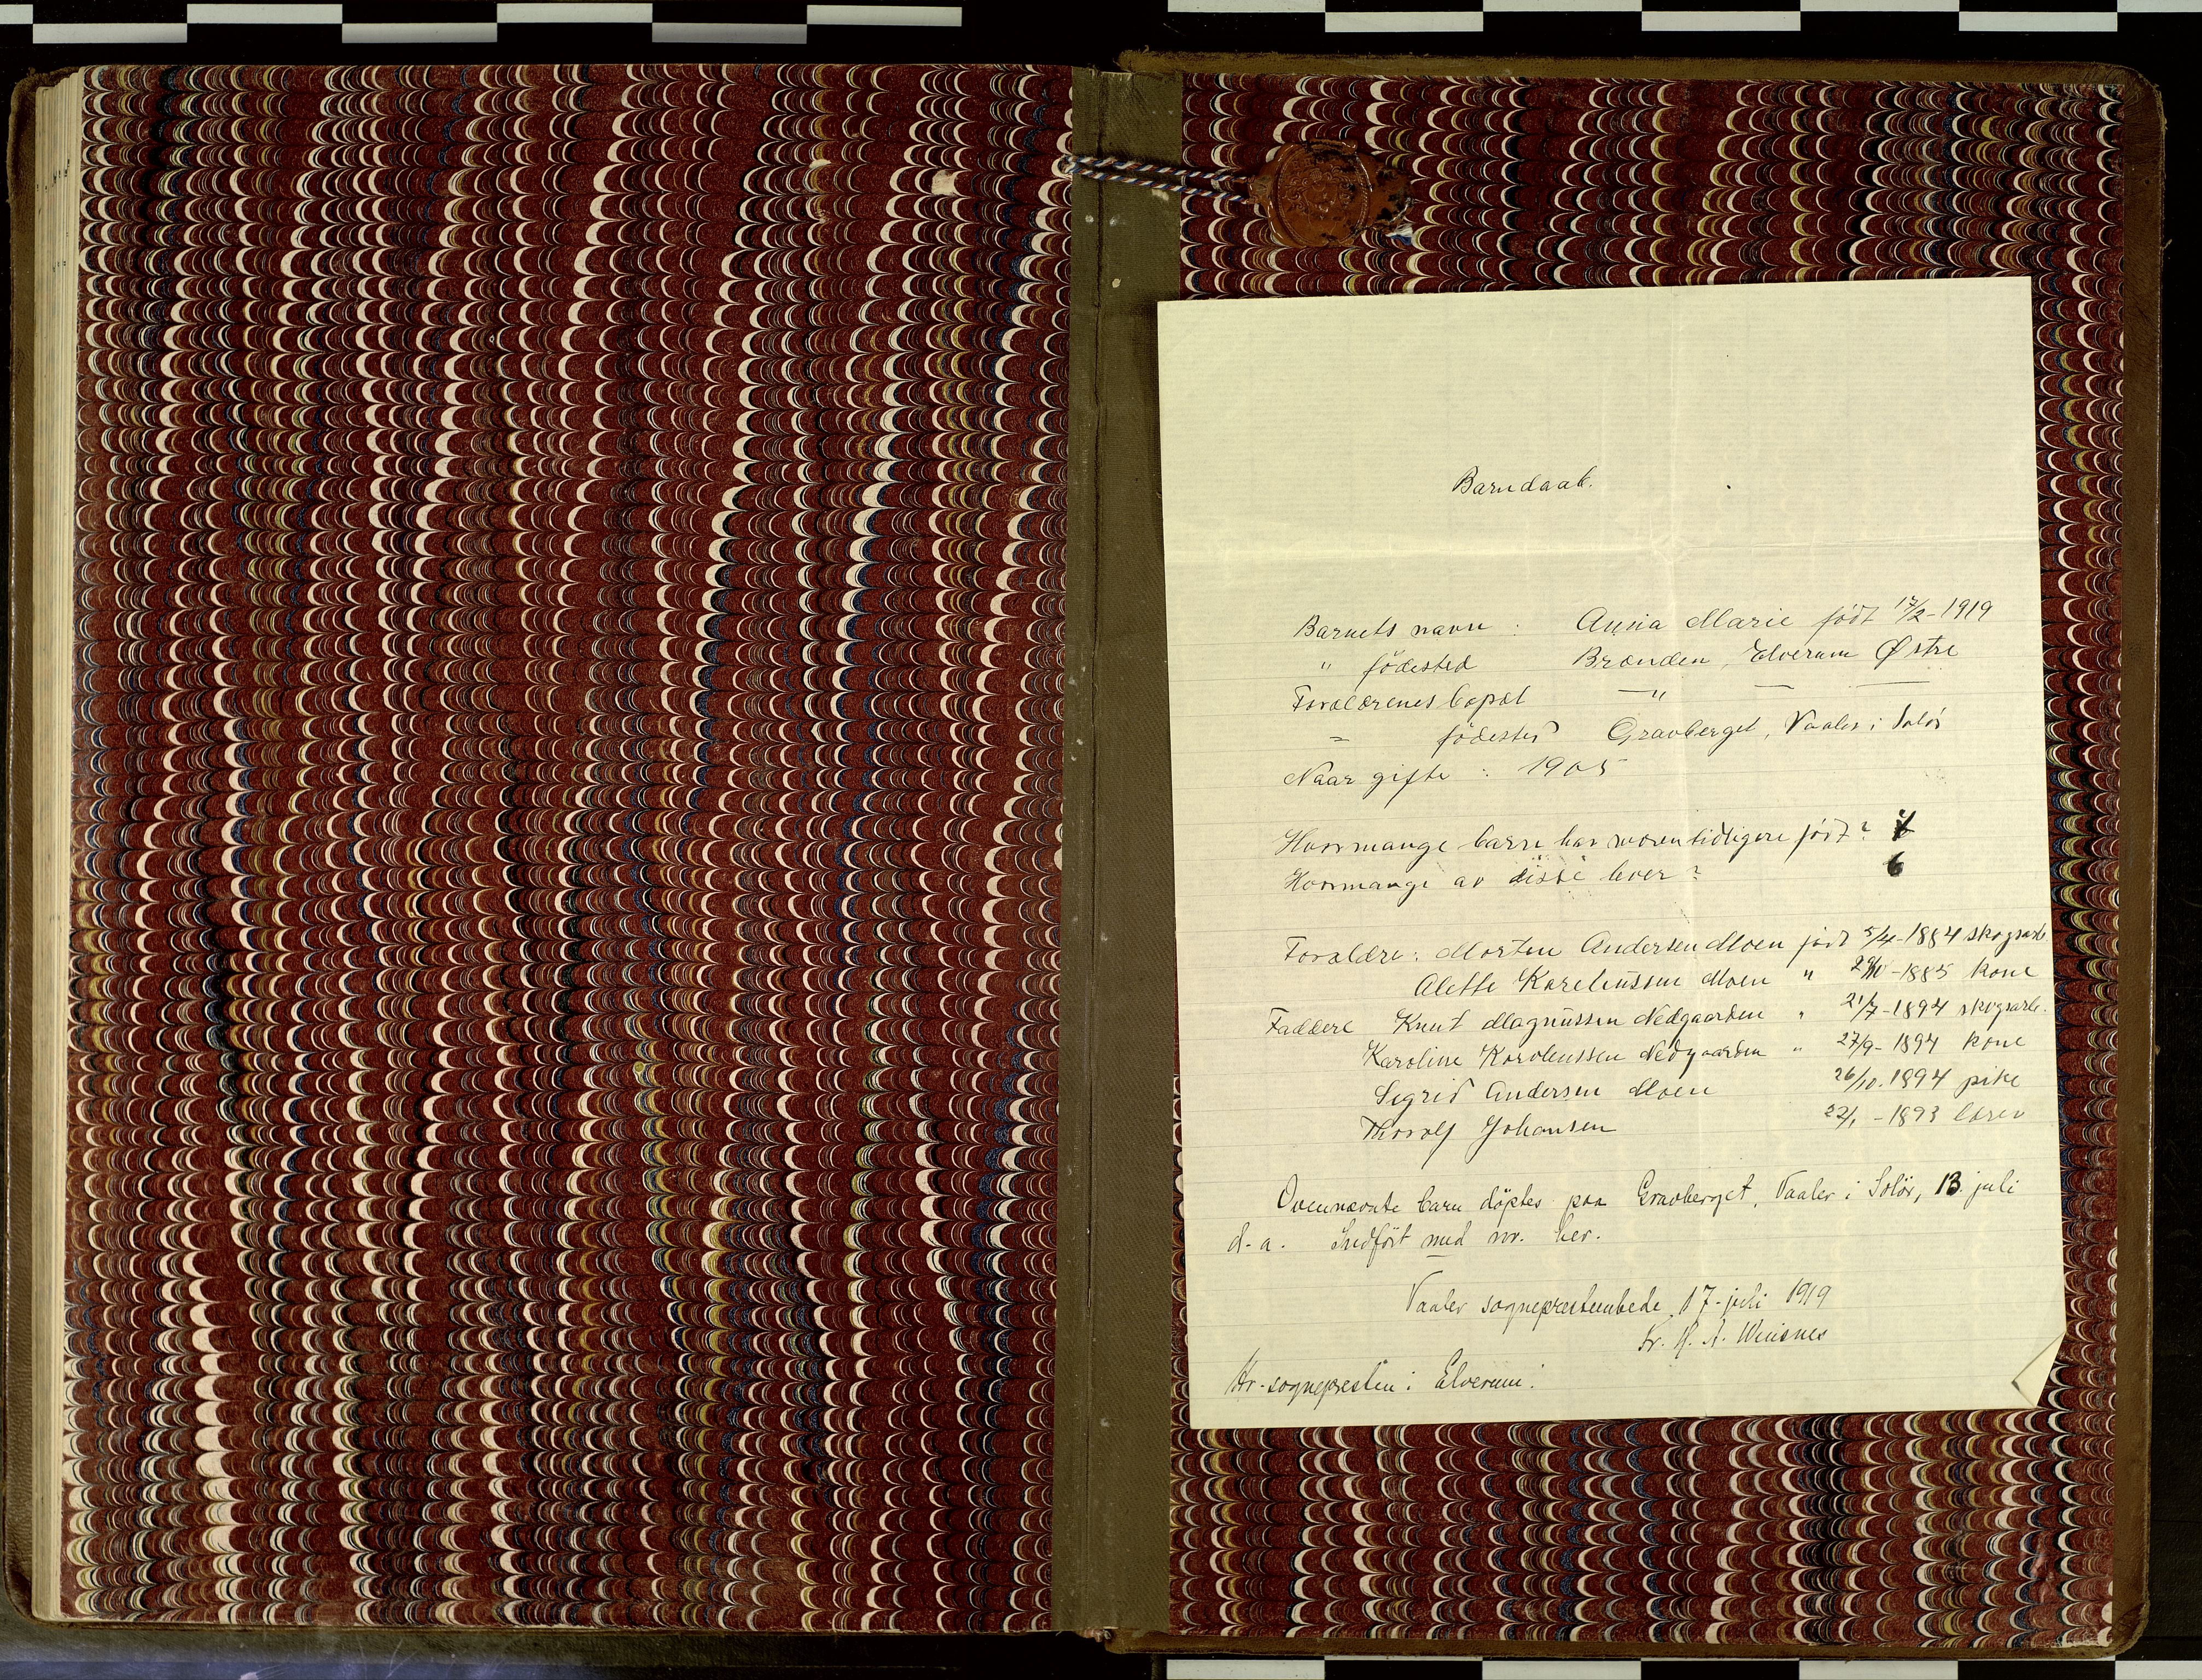 Barndaab.
Barnets navn : Anna Marie födt 17/2-1919
" födested Brænden, Elverum Østre
Forældrenes bopæl — " — —
= födested Gravberget, Vaaler i Solör
Naar gifte : 1905
Hvormange barn har moren tidligere födt?
Hvormange av disse lever? 6
Forældre: Morten Andersen Moen födt 5/4-1884 skogsarb.
Alette Karelinssen Moen " -1885 kone
Faddere Knut Magnussen Nedgaarden " 21/7-1894 skogsarb.
Karoline Karelinssen Nedgaarden " 27/9-1894 kone
Sigrid Andersen Moen 26/10.1894 pike
Thorolf Johansen 22/1-1893
Ovennævnte barn döptes paa Gravberget, Vaaler i Solör, 13 juli
d. a. Indfört med nr. her.
Vaaler sogneprestembede 17-juli 1919
Fr. H. A.
Hr. sognepresten i Elverum.